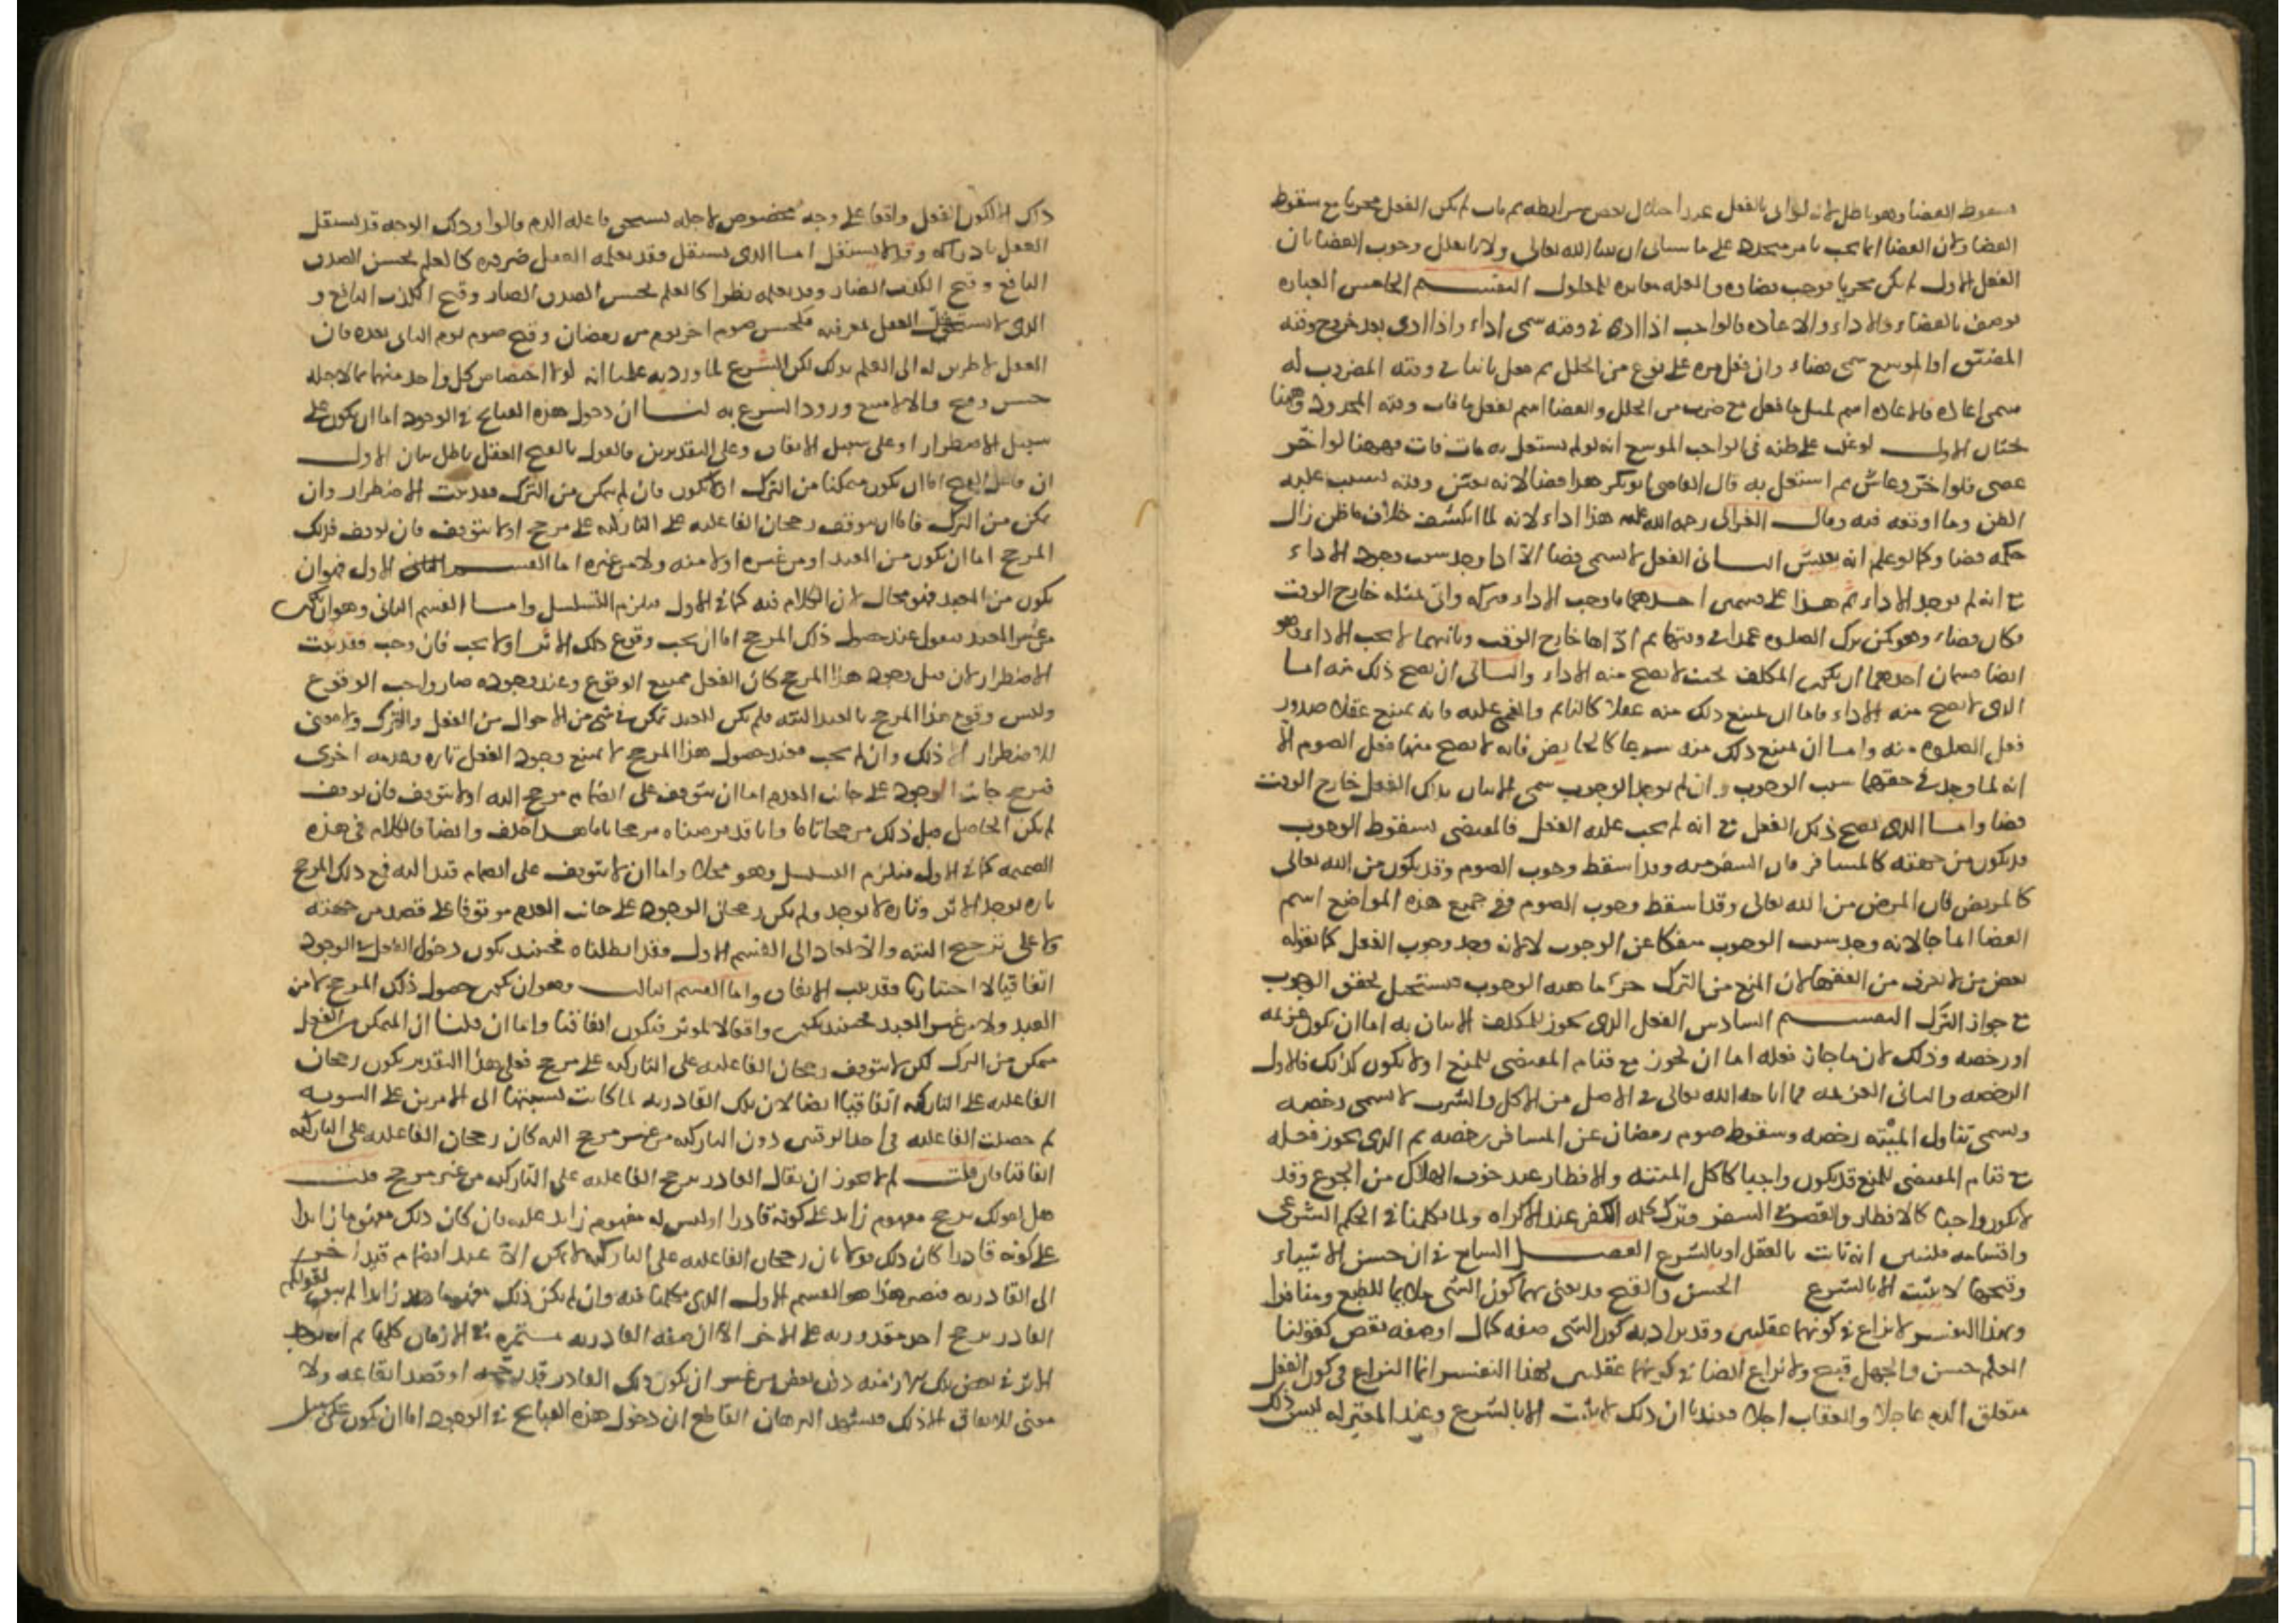 سقوط القضا وهو باطل لانه لو اتى بالفعل عند اختلال بعض شرايطه ثم مات لم يكن الفعل مجزيا مع سقوط
القضا ولان القضا انما يجب بامر متجدد على ما سياتى ان شا الله تعالى ولانا نعلل وجوب القضا بان
الفعل الاول لم يكن مجزيا فوجب قضاوه والعله مغايره للمعلول التقسيم الخامس العباده
توصف بالقضاء والاداء والاعاده فالواجب اذا ادى فى وقته سمى اداء واذا ادى بعد خروج وقته
المضيق او الموسع سمى قضاء وان فعل مره على نوع من الخلل ثم فعل ثانيا فى وقته المضروب له
سمى اعاده فالاعاده اسم لمثل ما فعل مع ضرب من الخلل والقضا اسم لفعل ما فات وقته المحدود وههنا
بحثان الاول لو غلب على ظنه فى الواجب الموسع انه لو لم يشتغل به مات فات فههنا لو اخر
عصى فلو اخر وعاش ثم اشتغل به قال القاضى ابو بكر هذا قضا لانه تعين وقته بسبب غلبه
الظن وما اوقعه فيه وقال الغزالى رحمه الله عليه هذا اداء لانه لما انكشف خلاف ما ظن زال
حكمه فصار كما لو علم انه يعيش الثانى الفعل لا يسمى قضا الا اذا وجد سبب وجوب الاداء
مع انه لم يوجد الاداء ثم هذا على قسمين احدهما ما وجب الاداء فتركه واتى بمثله خارج الوقت
فكان قضاء وهو كمن ترك الصلوه عمدا فى وقتها ثم اداها خارج الوقت وثانيهما لا يجب الاداء وهو
ايضا قسمان احدهما ان يكون المكلف بحيث لا يصح منه الاداء والثانى ان يصح ذلك منه اما
الذى لا يصح منه الاداء فاما ان يمتنع ذلك منه عقلا كالنايم والمغمى عليه فانه يمتنع عقلا صدور
فعل الصلوه منه واما ان يمتنع ذلك منه شرعا كالحايض فانه لا يصح منها فعل الصوم الا
انه لما وجد فى حقهما سبب الوجوب وان لم يوجد الوجوب سمى الاتيان بذلك الفعل خارج الوقت
قضا واما الذى يصح ذلك الفعل مع انه لم يجب عليه الفعل فالمقتضى لسقوط الوجوب
قد يكون من جهته كالمسافر فان السفر منه وقد اسقط وجوب الصوم وقد يكون من الله تعالى
كالمريض فان المرض من الله تعالى وقد اسقط وجوب الصوم وفى جميع هذه المواضع اسم
القضا انما جا لانه وجد سبب الوجوب منفكا عن الوجوب لا لانه وجد وجوب الفعل كما يقوله
بعض من لا يعرف من الفقها لان المنع من الترك جزء ماهيه الوجوب فيستحيل تحقق الوجوب
مع جواز الترك التقسيم السادس الفعل الذى يجوز للمكلف الاتيان به اما ان يكون عزيمه
او رخصه وذلك لان ما جاز فعله اما ان يجوز مع قيام المقتضى للمنع او لا يكون كذلك فالاول
الرخصه والثانى العزيمه فما اباحه الله تعالى فى الاصل من الاكل والشرب لا يسمى رخصه
ويسمى تناول الميته رخصه وسقوط صوم رمضان عن المسافر رخصه ثم الذى يجوز فعله
مع قيام المقتضى للمنع قد يكون واجبا كاكل الميته والافطار عند خوف الهلاك من الجوع وقد
لا يكون واجبا كالافطار والقصر فى السفر وترك كلمه الكفر عند الاكراه ولما تكلمنا فى الحكم الشرعى
واقسامه فلنبين انه ثابت بالعقل او بالشرع الفصل السابع فى ان حسن الاشياء
وقبحها لا يثبت الا بالشرع الحسن والقبح قد يعنى بهما كون الشى ملايما للطبع ومنافرا
وبهذا التفسير لا نزاع فى كونهما عقليين وقد يراد به كون الشى صفه كمال او صفه نقص كقولنا
العلم حسن والجهل قبيح ولا نزاع ايضا فى كونهما عقليين بهذا التفسير انما النزاع فى كون الفعل
متعلق الذم عاجلا والعقاب اجلا فعندنا ان ذلك لا يثبت الا بالشرع وعند المعتزله ليس ذلك
ذاك الا لكون الفعل واقعا على وجه مخصوص لاجله يستحق فاعله الذم قالوا وذلك الوجه قد يستقل
العقل بادراكه وقد لا يستقل اما الذى يستقل فقد يعلمه العقل ضروره كالعلم بحسن الصدق
النافع وقبح الكذب الضار وقد يعلمه نظرا كالعلم بحسن الصدق الضار وقبح الكذب النافع و
الذى لا يستقل العقل بمعرفته فكحسن صوم اخر يوم من رمضان وقبح صوم يوم الذى بعده فان
العقل لا طريق له الى العلم بذلك لكن الشرع لما ورد به علمنا انه لولا اختصاص كل واحد منهما بما لاجله
حسن وقبح والا لامتنع ورود الشرع به لنا ان دخول هذه القبايح فى الوجود اما ان يكون على
سبيل الاضطرار او على سبيل الاتفاق وعلى التقديرين فالقول بالقبح العقلى باطل بيان الاول
ان فاعل القبيح اما ان يكون متمكنا من الترك او لا يكون فان لم يتمكن من الترك فقد ثبت الاضطرار وان
تمكن من الترك فاما ان يتوقف رجحان الفاعليه على التاركيه على مرجح او لا يتوقف فان توقف فذلك
المرجح اما ان يكون من العبد او من غيره او لا منه ولا من غيره اما القسم الاول فهو ان
يكون من العبد فهو محال لان الكلام فيه كما فى الاول فيلزم التسلسل واما القسم الثانى وهو ان يكون
من غير العبد فنقول عند حصول ذلك المرجح اما ان يجب وقوع ذلك الاثر او لا يجب فان وجب فقد ثبت
الاضطرار لان قبل وجود هذا المرجح كان الفعل ممتنع الوقوع وعند وجوده صار واجب الوقوع
وليس وقوع هذا المرجح بالعبد البته فلم يكن للعبد تمكن فى شى من الاحوال من الفعل والترك ولا معنى
للاضطرار الا ذلك وان لم يجب فعند حصول هذا المرجح لا يمتنع وجود الفعل تاره وعدمه اخرى
فترجح جانب الوجود على جانب العدم اما ان يتوقف على انضمام مرجح اليه او لا يتوقف فان توقف
لم يكن الحاصل قبل ذلك مرجحا تاما وانا قد فرضناه مرجحا تاما هذا خلف وايضا فالكلام فى هذه
الضميمه كما فى الاول فيلزم التسلسل وهو محال واما ان لا يتوقف على انضمام قيد اليه فمع ذلك المرجح
تاره يوجد الاثر وتاره لا يوجد ولم يكن رجحان الوجود على جانب العدم موقوفا على قصد من جهته
ولا على ترجيح البته والا لعاد الى القسم الاول وقد ابطلناه فحينئذ يكون دخول الفعل فى الوجود
اتفاقيا لا اختياريا فقد ثبت الاتفاق واما القسم الثالث وهو ان يكون حصول ذلك المرجح لا من
العبد ولا من غير العبد فحينئذ يكون واقعا لا لموثر فيكون اتفاقيا واما ان قلنا ان المتمكن من الفعل
متمكن من الترك لكن لا يتوقف رجحان الفاعليه على التاركيه على مرجح فعلى هذا التقدير يكون رجحان
الفاعليه على التاركيه اتفاقيا ايضا لان تلك القادريه لما كانت نسبتها الى الامرين على السويه
ثم حصلت الفاعليه فى احد الوقتين دون التاركيه من غير مرجح البته كان رجحان الفاعليه على التاركيه
اتفاقيا فان قلت لم لا يجوز ان يقال القادر يرجح الفاعليه على التاركيه من غير مرجح قلت
هل لقولك يرجح مفهوم زايد على كونه قادرا او ليس له مفهوم زايد عليه فان كان ذلك مفهوما زايدا
على كونه قادرا كان ذلك قولا بان رجحان الفاعليه على التاركيه لا يمكن الا عند انضمام قيد اخر
الى القادريه فيصير هذا هو القسم الاول الذى تكلمنا فيه وان لم يكن ذلك مفهوما زايدا لم يبق لقولكم
القادر يرجح احد مقدوريه على الاخر الا ان صفه القادريه مستمره فى الازمان كلها ثم انه يوجد
الاثر فى بعض تلك الازمنه دون بعض من غير ان يكون ذلك القادر قد رجحه او قصد ايقاعه ولا
معنى للاتفاق الا ذلك فثبت بهذا البرهان القاطع ان دخول هذه القبايح فى الوجود اما ان يكون على سبيل